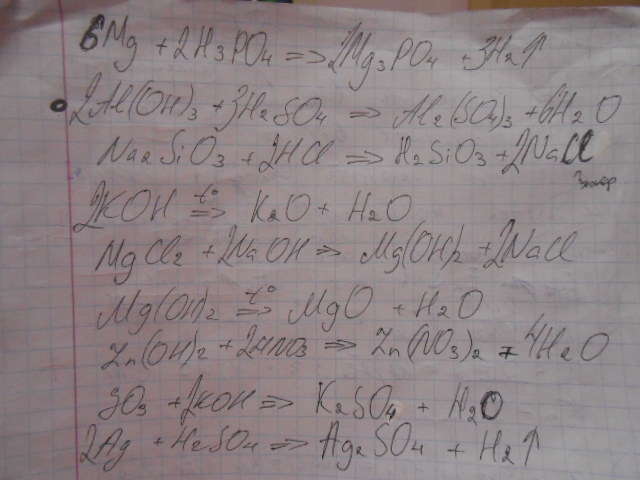 6Mg + 2H3PO4 => 2Mg3PO4 + 3H2↑
2Al(OH)3 + 3H2SO4 => Al2(SO4)3 + 6H2O
Na2SiO3 + 2HCl => H2SiO3 + 2NaCl
2KOH t°=> K2O + H2O
MgCl2 + 2NaOH => Mg(OH)2 + 2NaCl
Mg(OH)2 t°=> MgO + H2O
Zn(OH)2 + 2HNO3 => Zn(NO3)2 + 4H2O
SO3 + 2KOH => K2SO4 + H2O
2Ag + H2SO4 => Ag2SO4 + H2↑